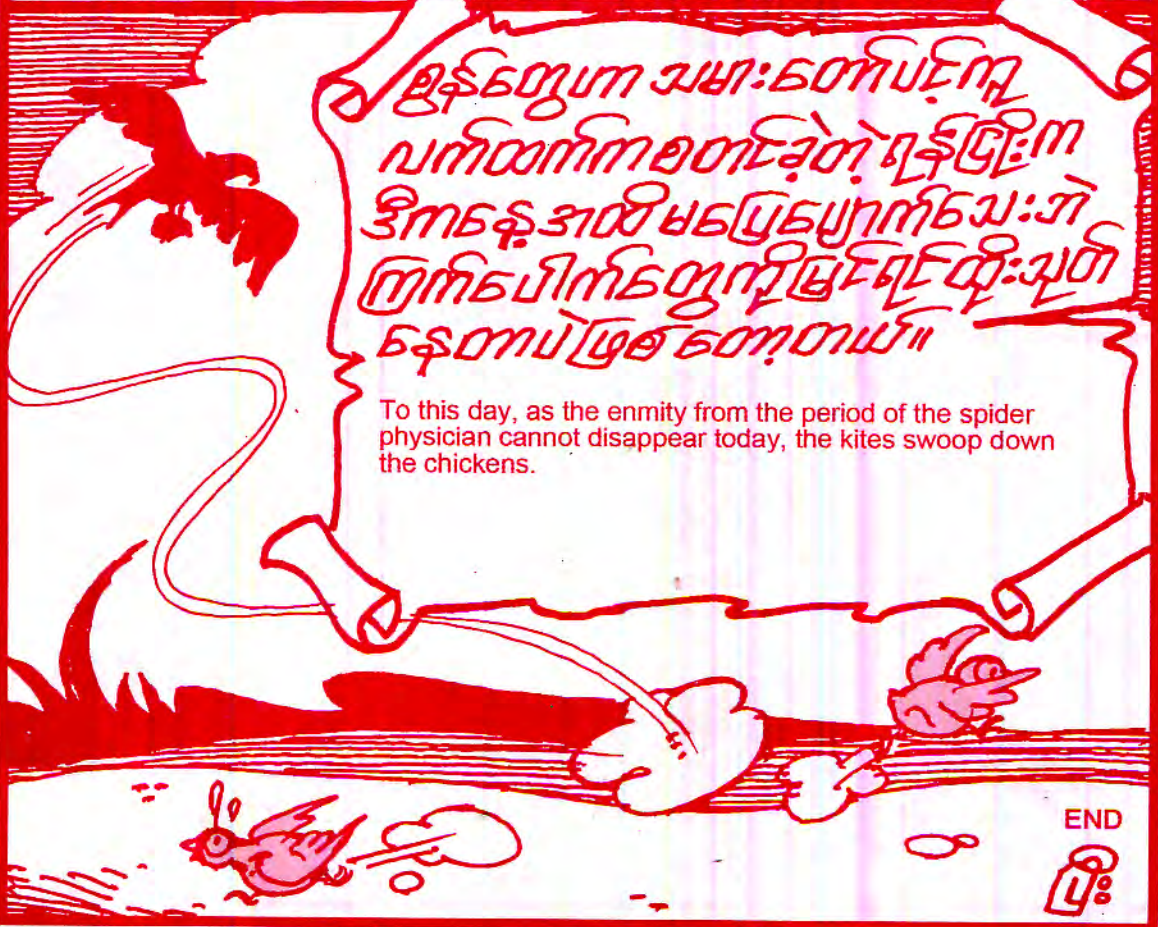 စွန်တွေဟာ သမားတော်ပင့်ကူ
လက်ထက်ကစတင်ခဲ့တဲ့ ရန်ငြိုးက
ဒီကနေ့အထိ မပြေပျောက်သေးဘဲ
ကြက်ပေါက်တွေကိုမြင်ရင် ထိုးသုတ်
နေတာပဲဖြစ်တော့တယ်။
To this day, as the enmity from the period of the spider
physician cannot disappear today, the kites swoop down
the chickens.
END
ပြီး